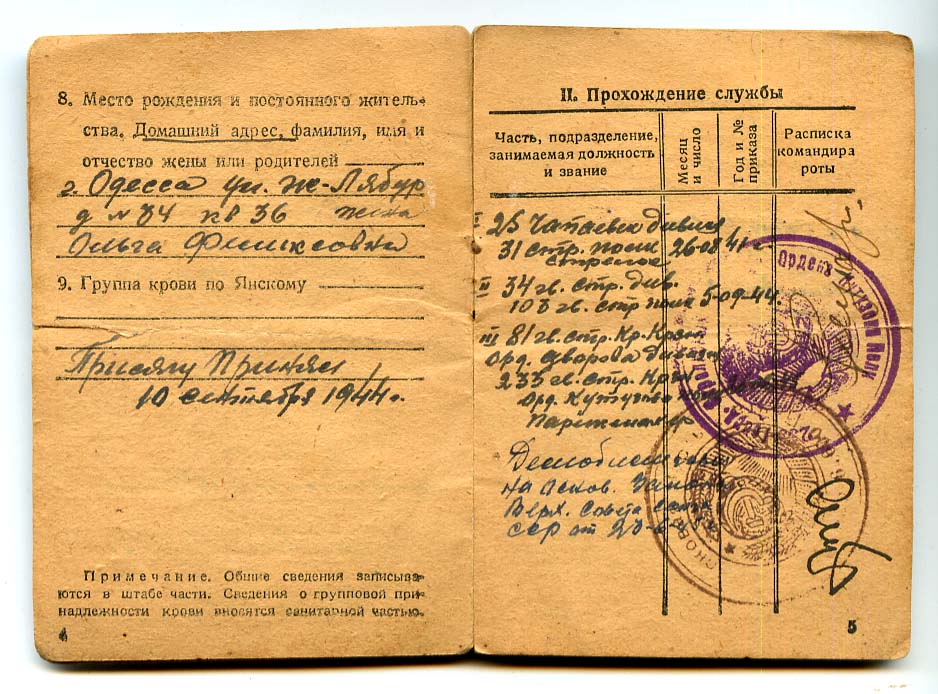 8. Место рождения и постоянного житель-
ства. Домашний адрес, фамилия, имя и
отчество жены или родителей
г. Одесса ул. Ж-Лябур
д № 34 кв 36 жена
Ольга Феликсовна
9. Группа крови по Янскому
Присягу Принял
10 сентября 1944 г.
Примечание. Общие сведения записыва-
ются в штабе части. Сведения о групповой при-
надлежности крови вносятся санитарной частью.
4
II. Прохождение службы
Часть, подразделение,
занимаемая должность
и звание
Месяц
и число
Год и №
приказа
Расписка
командира
роты
I 25 Чапаевск дивиз
31 стр. полк 26-08 41 г
стрелок
II 34 гв. стр. див.
103 гв. стр полк 5-09-44.
III 81 гв. стр. Кр.
Орд. дивиз
233 гв. стр. Кр
Орд. Кутузова
на основ.
Верх. Совета
ССР от 23-6
Ордена Кутузова
5